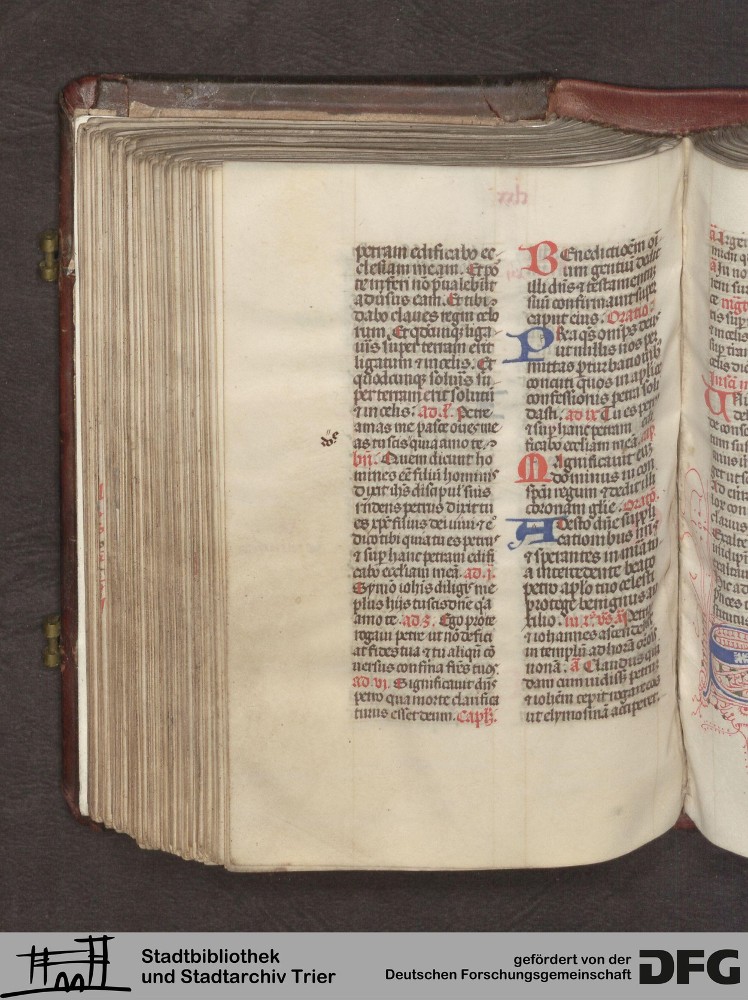 petram edificabo ec
clesiam meam. Et por
te inferi non preualebunt
aduersus eam. Et tibi
dabo claues regni celo
rum. Et quodcumque liga
ueris super terram erit
ligatum et in celis. Et
quodcumque solueris su
per terram erit solutum
et in celis. Petre
amas me pasce oues me
as tu scis quia amo te.
Quem dicunt ho
mines esse filium hominis
dixit ihesus discipulis suis
respondens petrus dixit tu
es xpristus filius dei uiui et ego
dico tibi quia tu es petrus
et super hanc petram edifi
cabo ecclesiam meam. ad .i.
Symon iohannis diligis me
plus hiis tu scis domine quia
amo te. ad .3. Ego pro te
rogaui petre ut non defici
at fides tua et tu aliquando con
uersus confirma fratres tuos.
ad vi. Significauit dominus
petro qua morte clarifica
turus esset deum. Capitulum.
Benedictionem om
nium gentium dedit
illi dominus et testamentum
suum confirmauit super
caput eius. Oratio
ut nullis nos per
mittas perturbationibus
concuti quos in apostolice
confessionis petra soli
dasti. ad ix Tu es petrus
et super hanc petram edi
ficabo ecclesiam meam.
Magnificauit eum
dominus in con
spectu regum et dedit illi
coronam glorie. Oratio.
Adesto domine suppli
cationibus
a intercedente beato
petro apostolo tuo celesti
protege benignus au
xilio.
et iohannes ascende
in templum ad horam orationis
nonam. a Claudus qui
dam cum uidisset petrum
et iohannem cepit rogare eos
ut elymosinam acciperet.
Stadtbibliothek
und Stadtarchiv Trier
gefördert von der
Deutschen Forschungsgemeinschaft
DFG